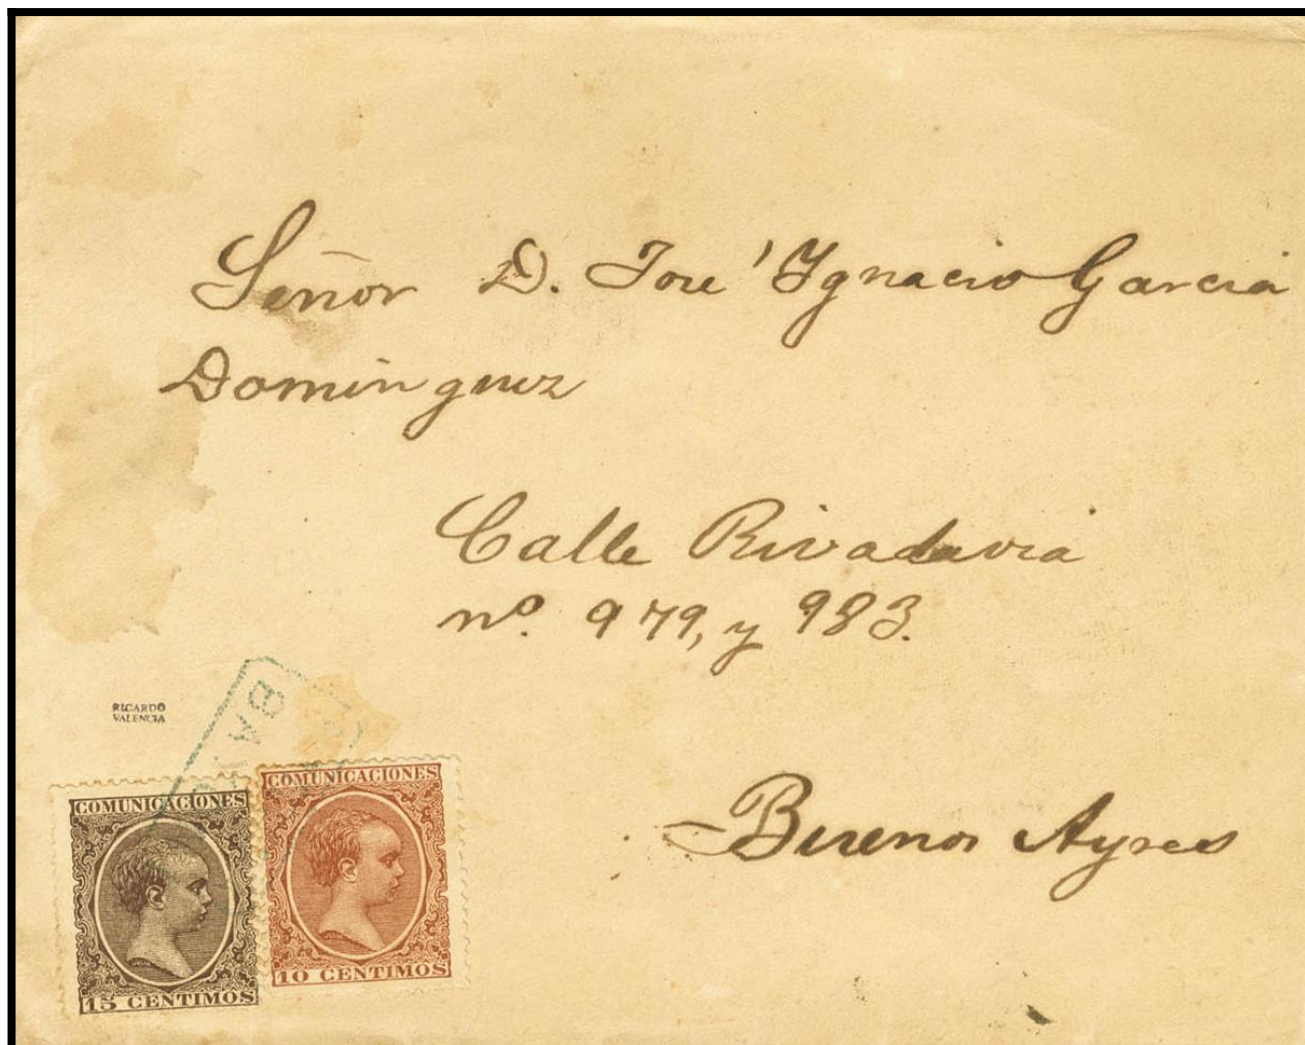 Señor D. José Ygnacio Garcia
Dominguez
Calle Rivadavia
nº. 979, y 983.
RICARDO
VALENCIA
Buenos Ayres
COMUNICACIONES
15 CENTIMOS
COMUNICACIONES
10 CENTIMOS